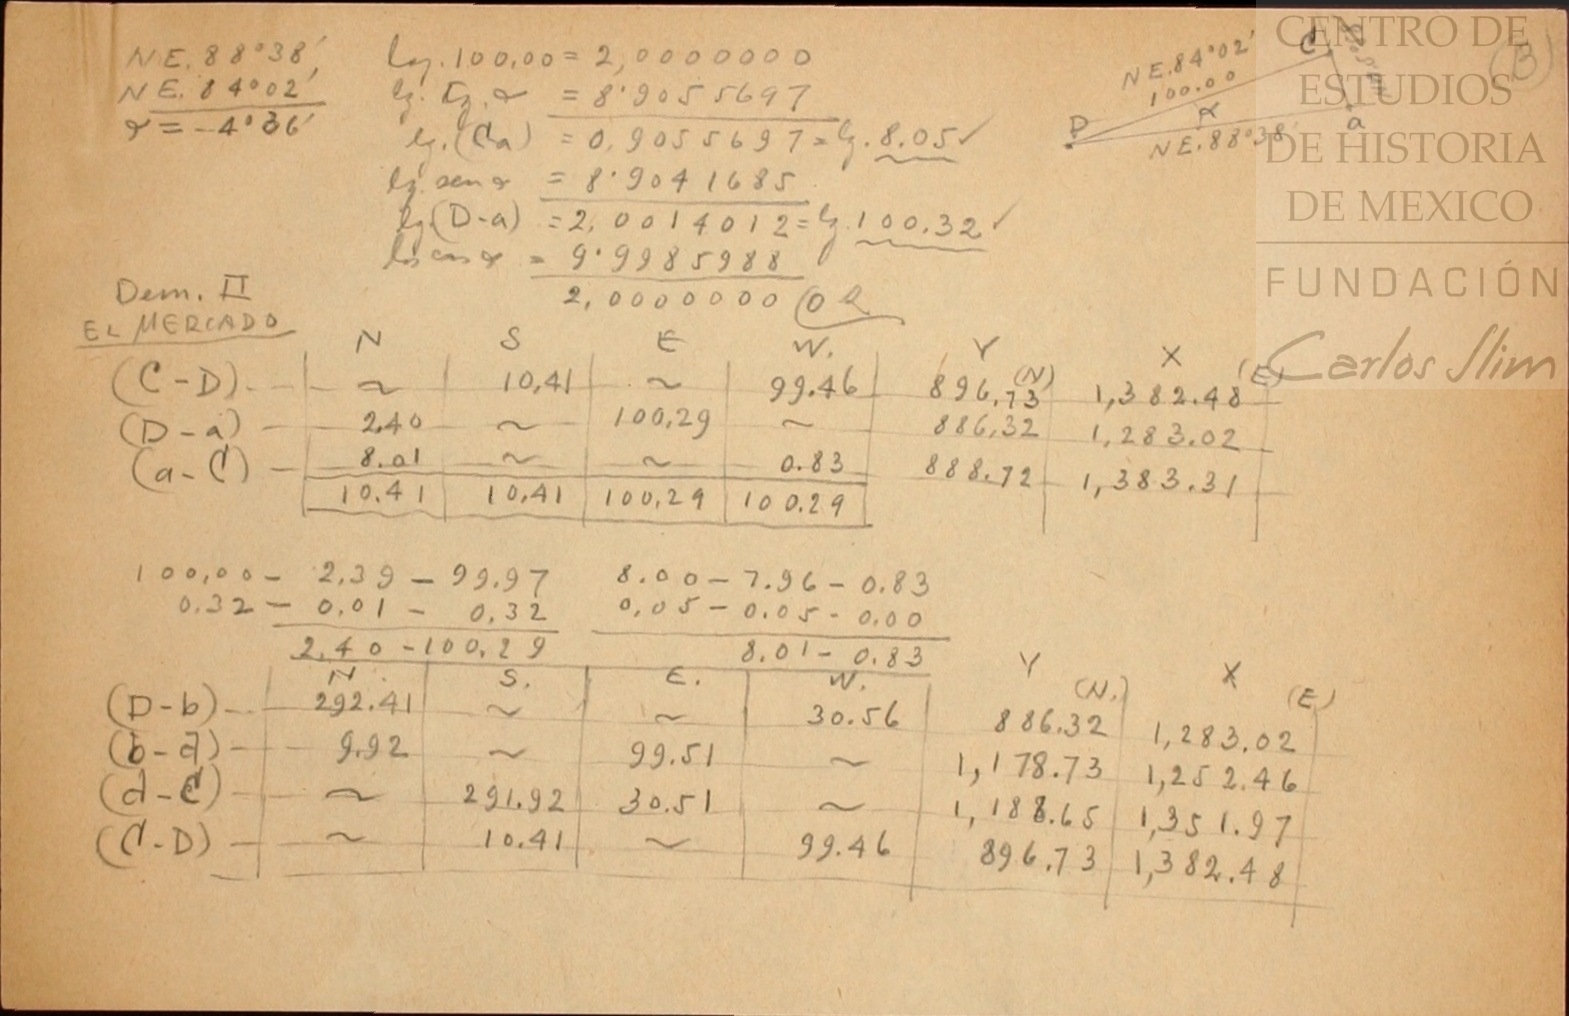 N.E. 88°38'
N E. 84°02'
α = -4°36'
log. 100,00 = 2,0000000
lg. Tg. α = 8.9055697
lg. (Ca) = 0,9055697 = lg. 8.05 ✓
lg. sen α = 8.9041685
lg. (D-a) = 2,0014012 = lg. 100.32 ✓
log cos α = 9.9985988
2,0000000 OK
N E. 84°02'
100.00
C
D
α
a
N E. 88°38'
(B)
CENTRO DE
ESTUDIOS
DE HISTORIA
DE MEXICO
FUNDACIÓN
Carlos Slim
Dem. II
EL MERCADO
N S E W. Y (N) X (E)
(C-D) - ~ 10,41 ~ 99.46 896,73 1,382.48
(D-a) - 2.40 ~ 100,29 ~ 886,32 1,283.02
(a-C) - 8.01 ~ ~ 0.83 888.72 1,383.31
10.41 10,41 100,29 100.29
100,00 - 2,39 - 99.97 8.00 - 7.96 - 0.83
0.32 - 0,01 - 0,32 0,05 - 0.05 - 0.00
2,40 - 100,29 8,01 - 0.83
N. S. E. W. Y (N.) X (E)
(D-b) - 292.41 ~ ~ 30.56 886.32 1,283.02
(b-d) - 9.92 ~ 99.51 ~ 1,178.73 1,252.46
(d-C) - ~ 291.92 30.51 ~ 1,188.65 1,351.97
(C-D) - ~ 10.41 ~ 99.46 896.73 1,382.48